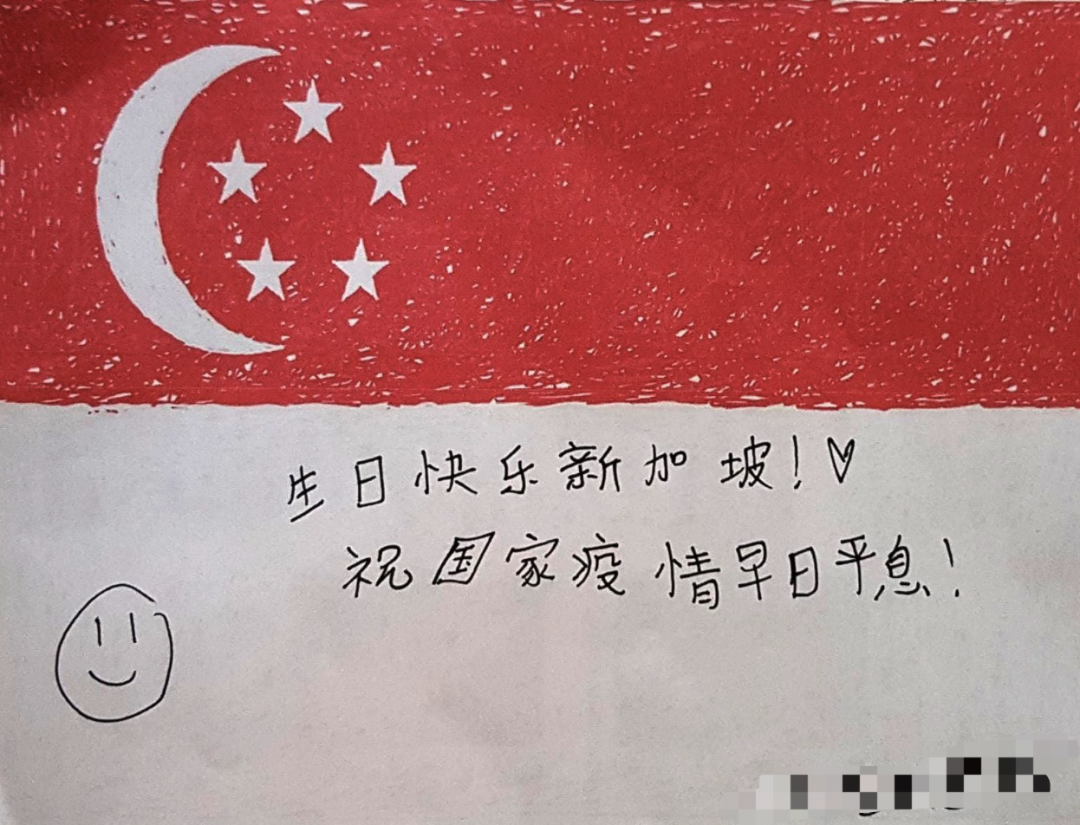 生日快乐新加坡!♡
祝国家疫情早日平息!